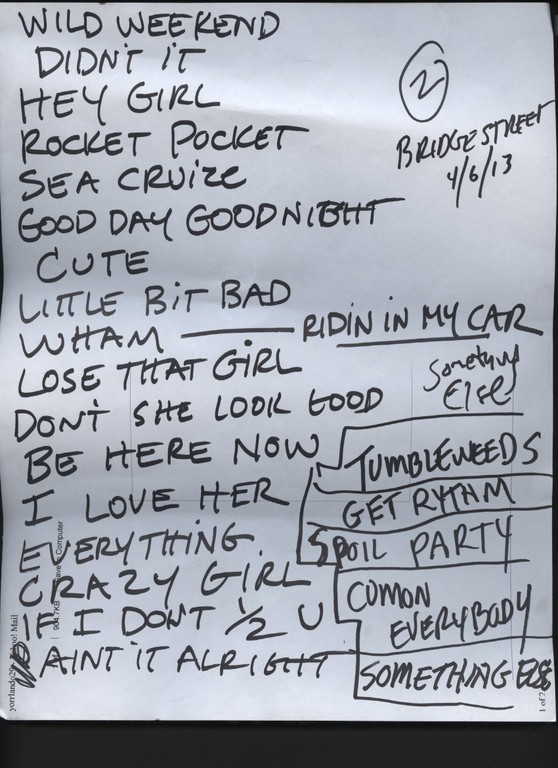 WILD WEEKEND
DIDN'T IT
HEY GIRL
ROCKET POCKET
SEA CRUIZE
GOOD DAY GOODNIGHT
CUTE
LITTLE BIT BAD
WHAM
RIDIN IN MY CAR
LOSE THAT GIRL
DON'T SHE LOOK GOOD
BE HERE NOW
I LOVE HER
EVERYTHING
CRAZY GIRL
IF I DON'T 1/2 U
AINT IT ALRIGHT
2
BRIDGE STREET
4/6/13
Something
Else
TUMBLEWEEDS
GET RYTHM
SPOIL PARTY
CUMON
EVERYBODY
SOMETHING ELSE
Mail
Computer
1 of 2